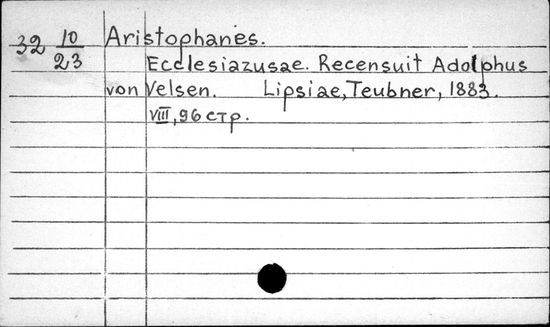 32 10/23 Aristophanes.
Ecclesiazusae. Recensuit Adolphus
von Velsen. Lipsiae, Teubner, 1883.
VIII, 96 стр.